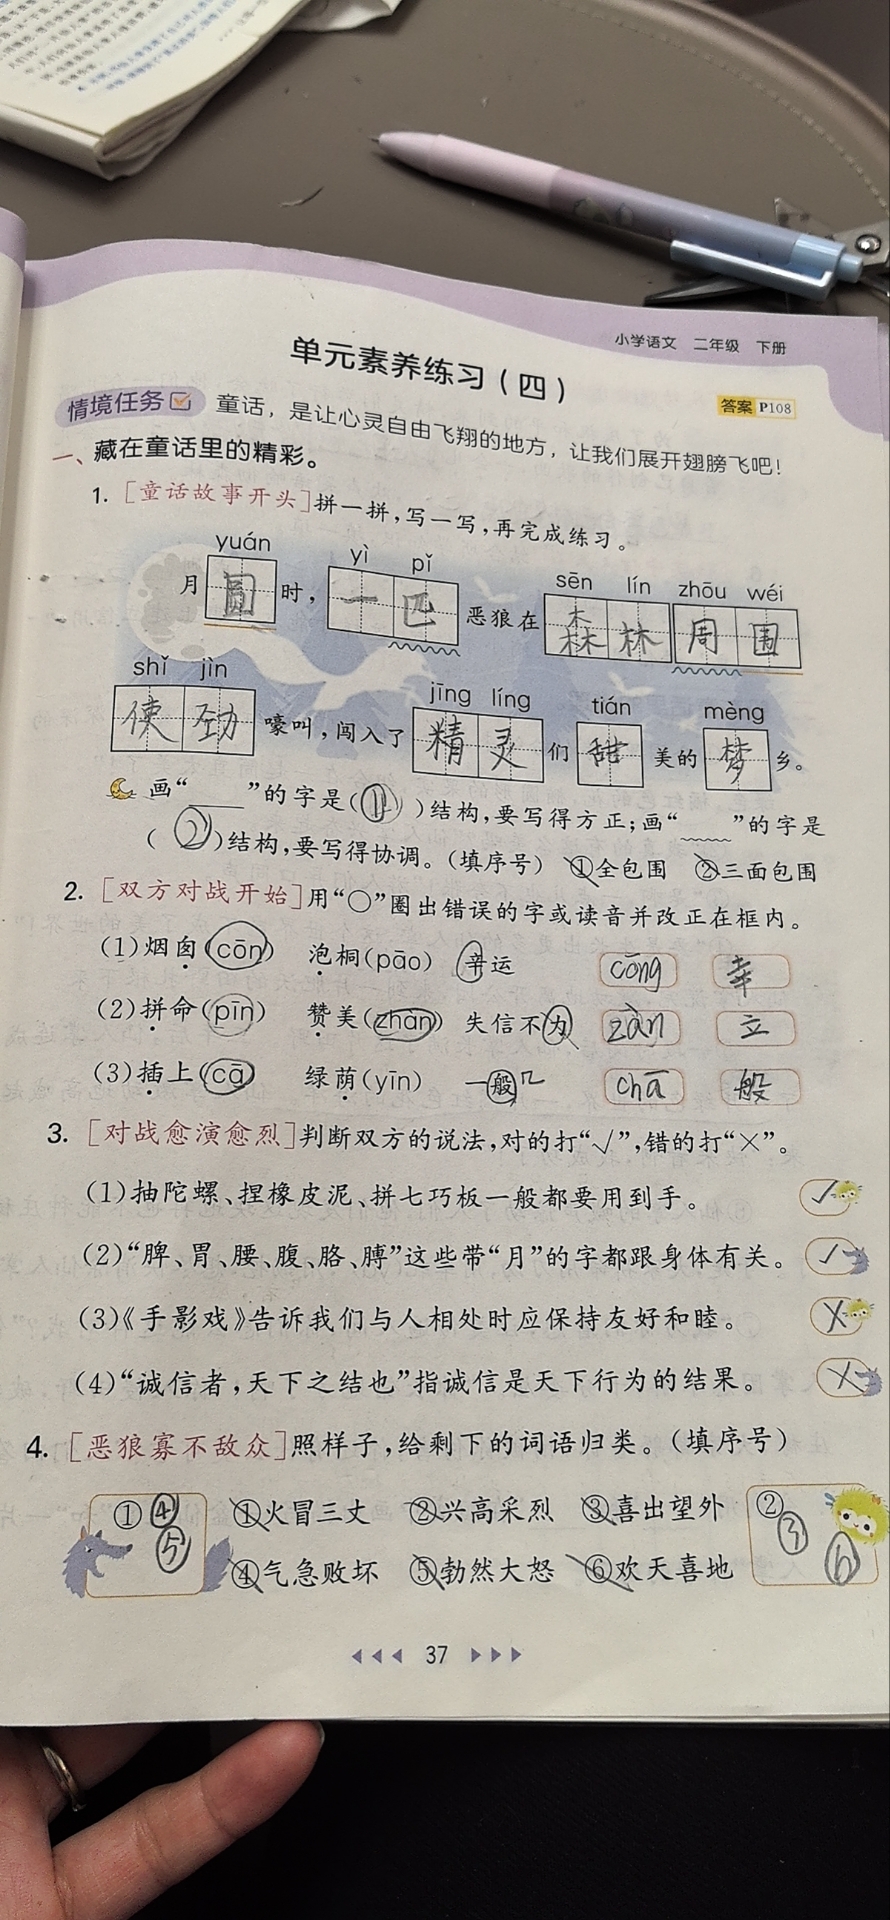 小学语文 二年级 下册
单元素养练习（四）
答案 P108
情境任务 童话，是让心灵自由飞翔的地方，让我们展开翅膀飞吧！
一、藏在童话里的精彩。
1. [童话故事开头]拼一拼，写一写，再完成练习。
yuán yì pǐ sēn lín zhōu wéi
月圆时，一匹恶狼在森林周围
shǐ jìn jīng líng tián mèng
使劲嚎叫，闯入了精灵们甜美的梦乡。
画“____”的字是(①)结构，要写得方正；画“﹏﹏”的字是
(②)结构，要写得协调。（填序号） ①全包围 ②三面包围
2. [双方对战开始]用“○”圈出错误的字或读音并改正在框内。
(1)烟囱(cōn) 泡桐(pāo) 辛运 cōng 幸
(2)拼命(pīn) 赞美(zhàn) 失信不为 zàn 立
(3)插上(cā) 绿荫(yīn) 一般几 chā 般
3. [对战愈演愈烈]判断双方的说法，对的打“√”，错的打“×”。
(1)抽陀螺、捏橡皮泥、拼七巧板一般都要用到手。 √
(2)“脾、胃、腰、腹、胳、膊”这些带“月”的字都跟身体有关。 √
(3)《手影戏》告诉我们与人相处时应保持友好和睦。 ×
(4)“诚信者，天下之结也”指诚信是天下行为的结果。 ×
4. [恶狼寡不敌众]照样子，给剩下的词语归类。（填序号）
①④ ①火冒三丈 ②兴高采烈 ③喜出望外 ②③
⑤ ④气急败坏 ⑤勃然大怒 ⑥欢天喜地 ⑥
37